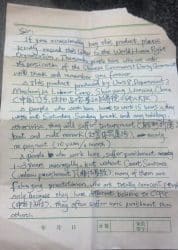 Sir:
If you occasionally buy this product, please
kindly resend this letter to the World Human Right
Organization. Thousands people here who are under
the persicution of the
will thank and remember you forever.
This product produced by Unit 8, Department 2
Masanjia Labour Camp, Shenyang, Liaoning, China.
(中国,辽宁,沈阳,马三家
People who work here, have to work 15 hours a day
with out Saturday, Sunday break and any holidays,
otherwise, they will suffer
beat and rude remark
no payment (10 yuan/1 month).
People who work here, suffer punishment nearly
1~3 years averagely, but without Court Sentence
Many of them are
Falun gong practitioner, who are totally innocent people
only because they have different believe to CCPG
they often suffer more punishment than
others.